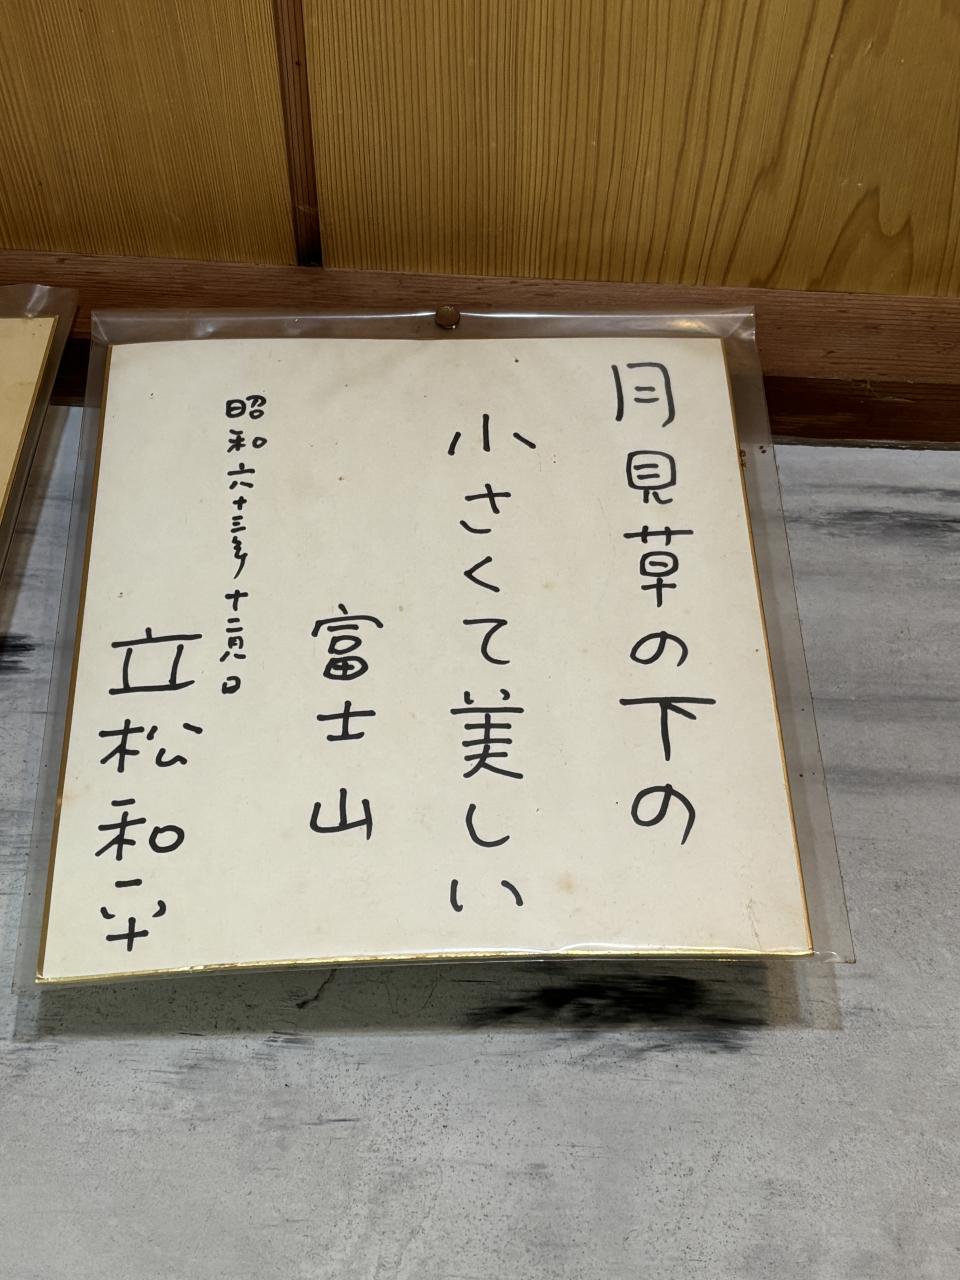 月見草の下の
小さくて美しい
富士山
昭和六十三年十二月八日
立松和平